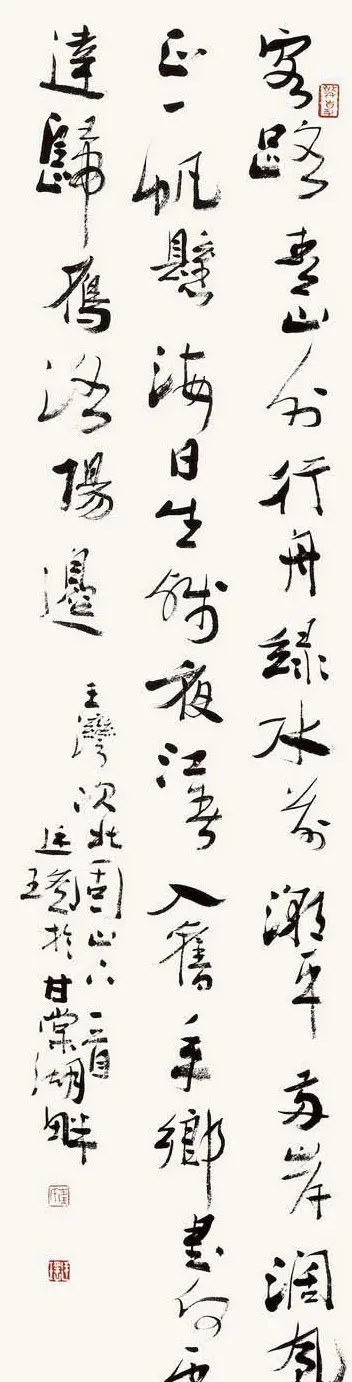 客路青山外行舟綠水前潮平兩岸闊風
正一帆懸海日生殘夜江春入舊年鄉書何處
達歸雁洛陽邊
王灣次北固山下一首
於甘棠湖畔